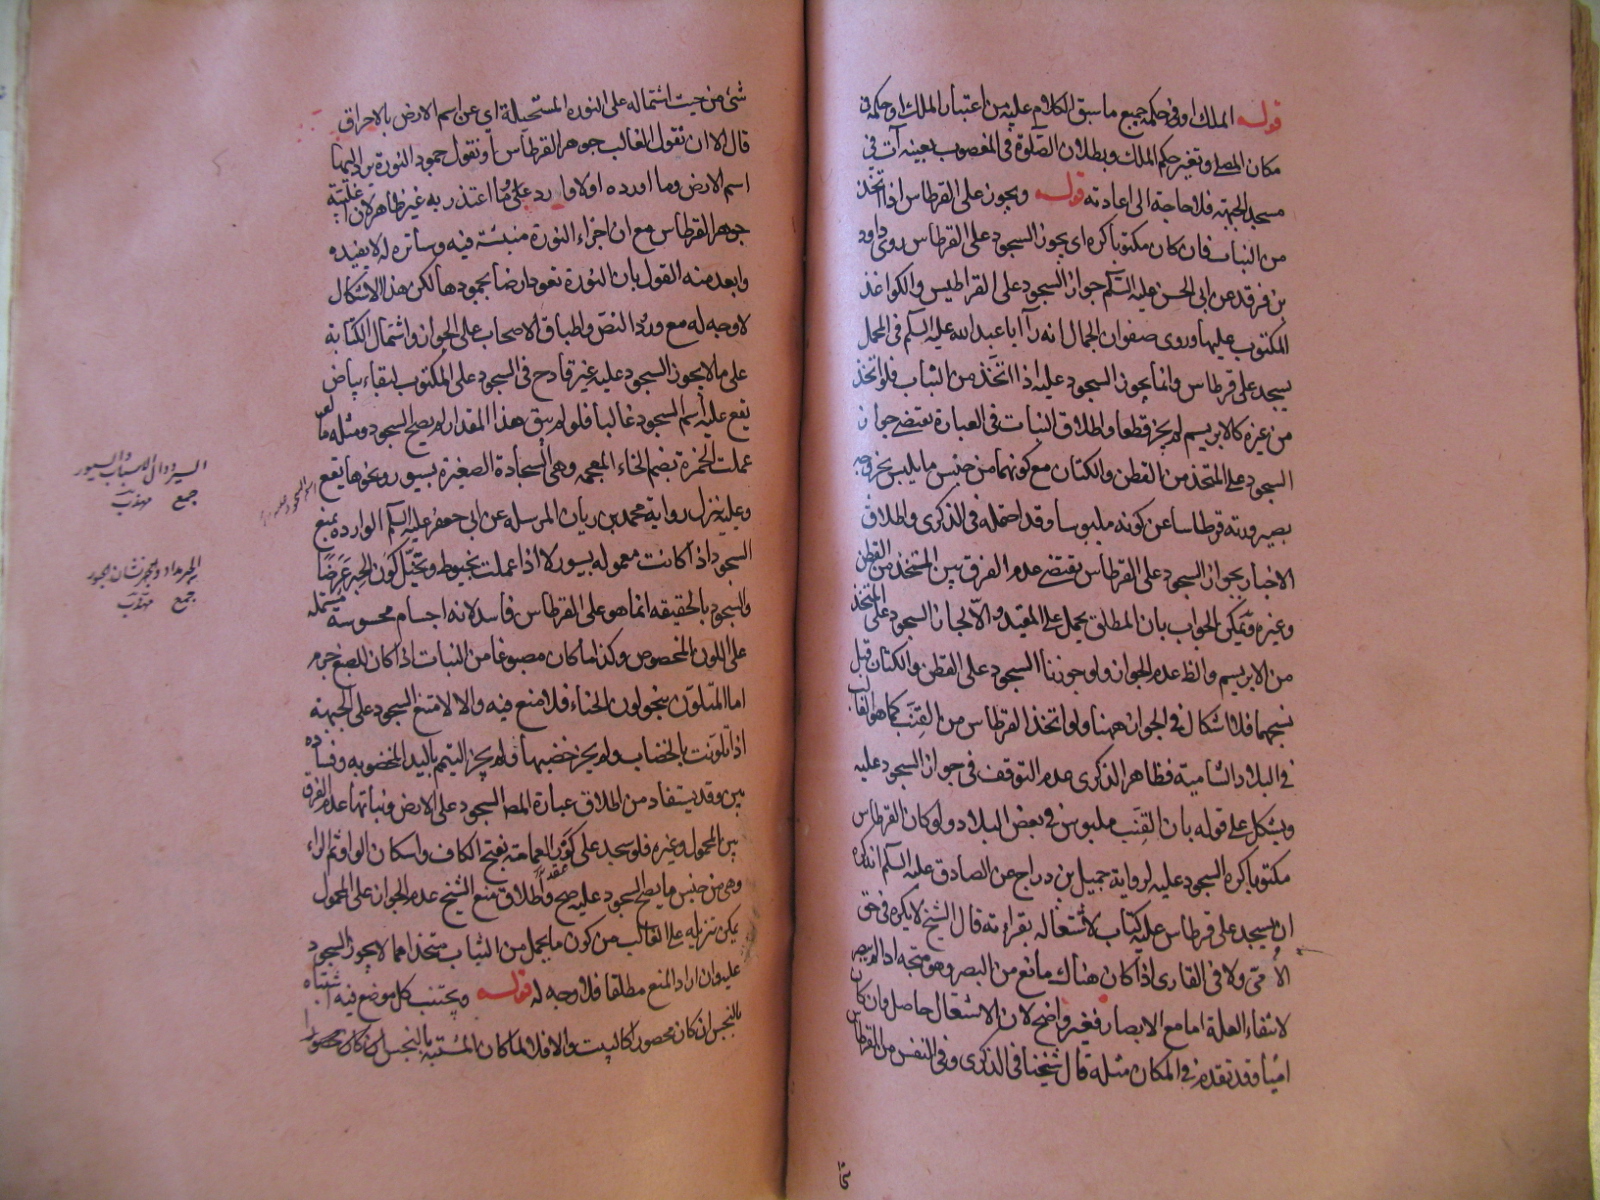 قوله الملك او في حكمه جميع ما سبق الكلام عليه من اعتبار الملك او حكمه في
مكان المصلي وتغير حكم الملك وبطلان الصلوة في المغصوب بعينه آت في
مسجد الجبهة فلا حاجة الى اعادته قوله ويجوز على القرطاس اذا اتخذ
من النبات فان كان مكتوبا كره اي يجوز السجود على القرطاس روى داود
بن فرقد عن ابي الحسن عليه السلم جواز السجود على القراطيس والكواغذ
المكتوب عليها وروى صفوان الجمال انه رأ ابا عبد الله عليه السلم في المحمل
يسجد على قرطاس وانما يجوز السجود عليه اذا اتخذ من النبات فلو اتخذ
من غيره كالابريسم لم يجز قطعا واطلاق النبات في العبارة يقتضي جواز
السجود على المتخذ من القطن والكتان مع كونهما من جنس ما يلبس بخروجه
بصيرورته قرطاسا عن كونه ملبوسا وقد احتمله في الذكرى واطلاق
الاخبار بجواز السجود على القرطاس يقتضي عدم الفرق بين المتخذ من القطن
وغيره ويمكن الجواب بان المطلق يحمل على المقيد والا لجاز السجود على المتخذ
من الابريسم والظ عدم الجواز ولو جوزنا السجود على القطن والكتان قبل
نسجهما فلا اشكال في الجواز ههنا ولو اتخذ القرطاس من القنب كما هو الغالب
في البلاد الشامية فظاهر الذكرى عدم التوقف في جواز السجود عليه
ويشكل على قوله بان القنب ملبوس في بعض البلاد ولو كان القرطاس
مكتوبا كره السجود عليه لرواية جميل بن دراج عن الصادق عليه السلم انه كره
ان يسجد على قرطاس عليه كتاب لاشتغاله بقراءته قال الشيخ لا يكره في حق
الأمي ولا في القاري اذا كان هناك مانع من البصر وهو متجه اذا لم يبصر
لانتفاء العلة اما مع الابصار فغير واضح لان الاشتغال حاصل وان كان
اميا وقد تقدم في المكان مثله قال شيخنا في الذكرى وفي النفس من القرطاس
شئ من حيث اشتماله على النورة المستحيلة اي عن اسم الارض بالاحراق
قال الا ان نقول الغالب جوهر القرطاس او نقول جمود النورة يرد اليها
اسم الارض وما اورده اولا وارد على ما اعتذر به غير ظاهر لان اغلبية
جوهر القرطاس مع ان اجزاء النورة منبثة فيه وساترة له لا يفيده
وابعد منه القول بان النورة تعود ارضا بجمودها لكن هذا الاشكال
لا وجه له مع ورود النص واطباق الاصحاب على الجواز واشتمال الكتابة
على ما لا يجوز السجود عليه غير قادح في السجود على المكتوب لبقاء بياض
يقع عليه اسم السجود غالبا فلو لم يبق هذا المقدار لم يصح السجود ومثله ما لو
عملت الخمرة بضم الخاء المعجمه وهي السجادة الصغيرة بسيور ونحوها يقع
وعليه ينزل رواية محمد بن ريان المرسله عن ابي جعفر عليه السلم الواردة بمنع
السجود اذا كانت معموله بسيور لا اذا عملت بخيوط وتخيل كون الحبر عرضا
والسجود بالحقيقه انما هو على القرطاس فاسد لانه اجسام محسوسة مشتمله
على اللون المخصوص وكذا ما كان مصبوغا من النبات اذا كان للصبغ جرم
اما المتلون بنحو لون الحناء فلا منع فيه والا لامتنع السجود على الجبهة
اذا تلونت بالخضاب ولم يجز خضبها ولم يجز التيمم باليد المخضوبه وفساده
بين وقد يستفاد من اطلاق عبارة المص السجود على الارض ونباتها عدم الفرق
بين المحمول وغيره فلو سجد على كور العمامة بفتح الكاف واسكان الواو ثم الراء
وهي من جنس ما يصح السجود عليه صح واطلاق منع الشيخ عدم الجواز على المحمول
يمكن تنزيله على الغالب من كون ما يحمل من الثياب متخذا مما لا يجوز السجود
عليه وان اراد المنع مطلقا فلا وجه له قوله ويجتنب كل موضع فيه اشتباه
بالنجس ان كان محصورا كالبيت والا فلا لما كان المشتبه بالنجس اذا كان محصورا
جمع مهذب
جمع مهذب